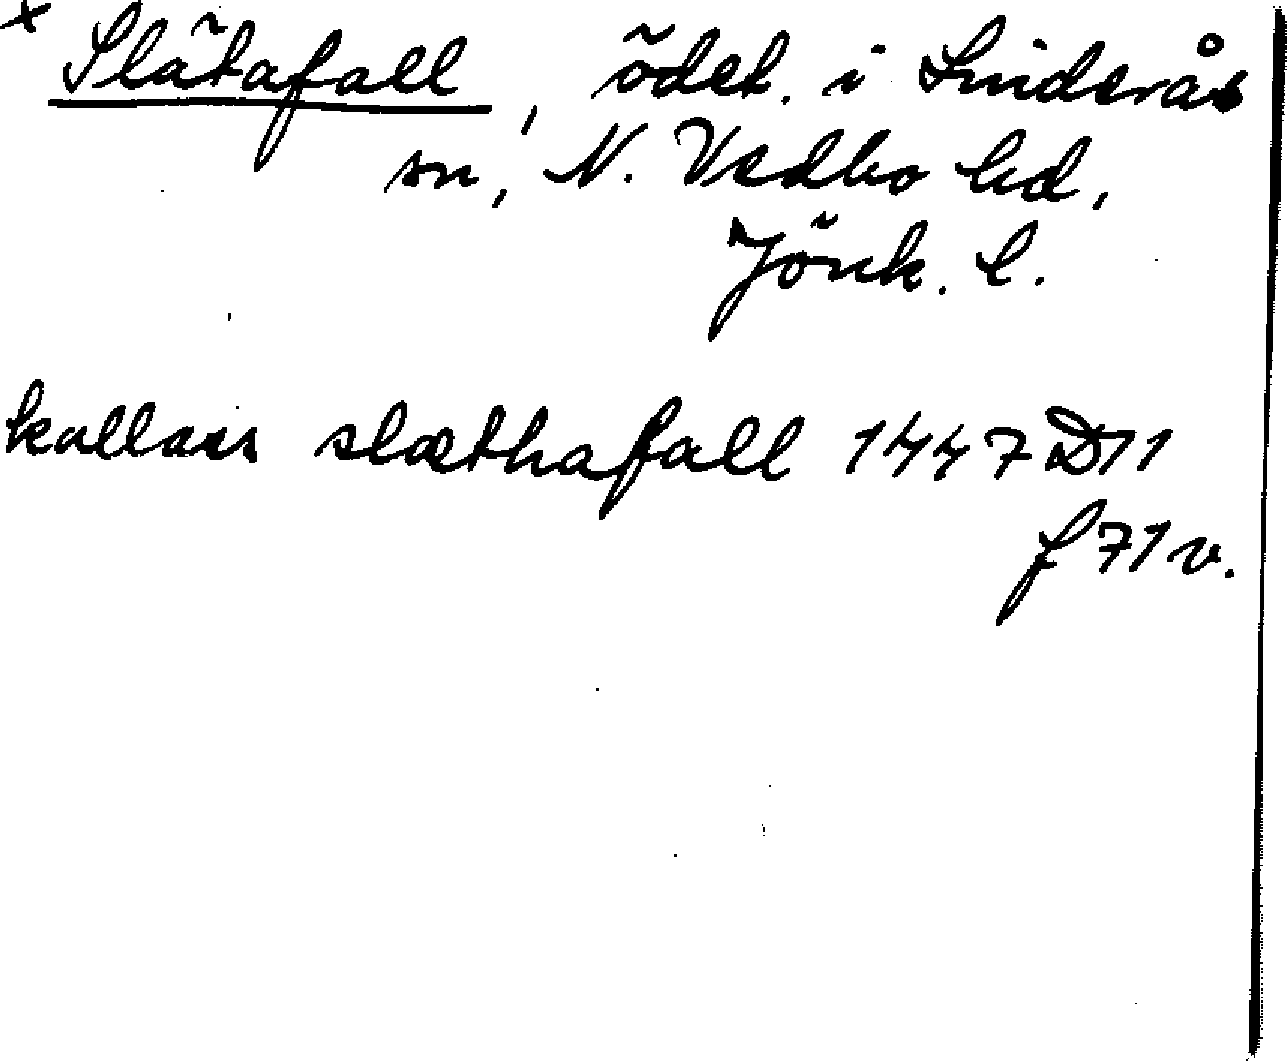 x Slätafall, ödet. i Linderås
sn, N. Vedbo hd,
Jönk. l.
kallass slæthafall 1447 D11
f 71 v.